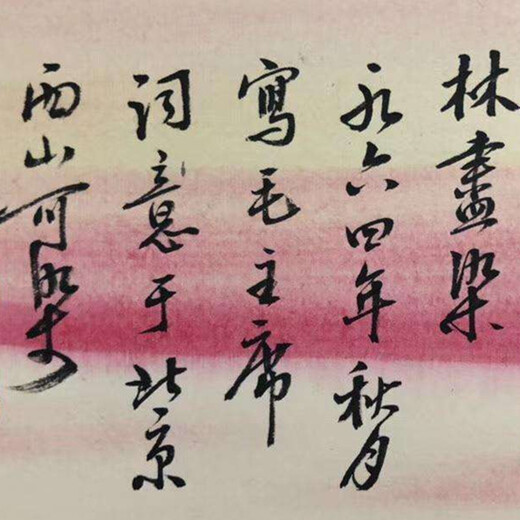 林盡染
一九六四年秋月
寫毛主席
詞意于北京
西山可染